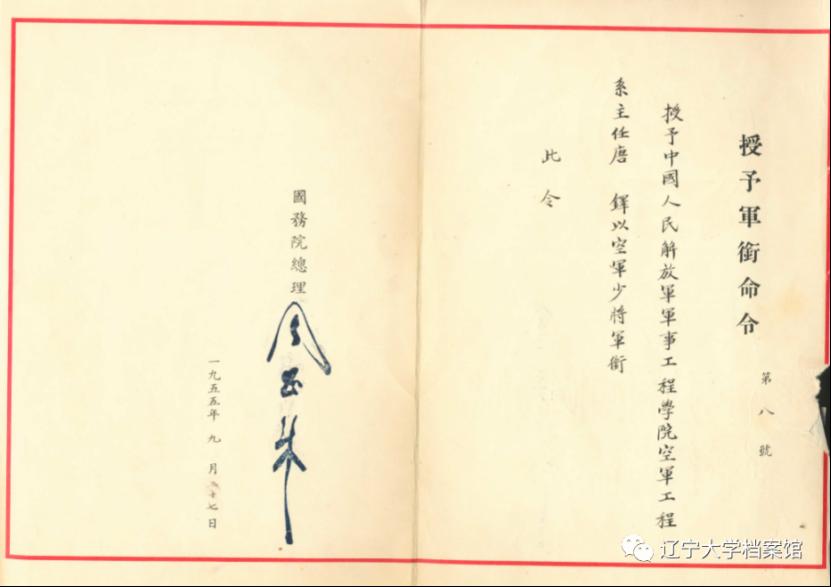 授予軍銜命令
第八號
授予中國人民解放軍軍事工程學院空軍工程
系主任唐 鐸以空軍少將軍銜
此令
國務院總理
周恩來
一九五五年九月二十七日
辽宁大学档案馆